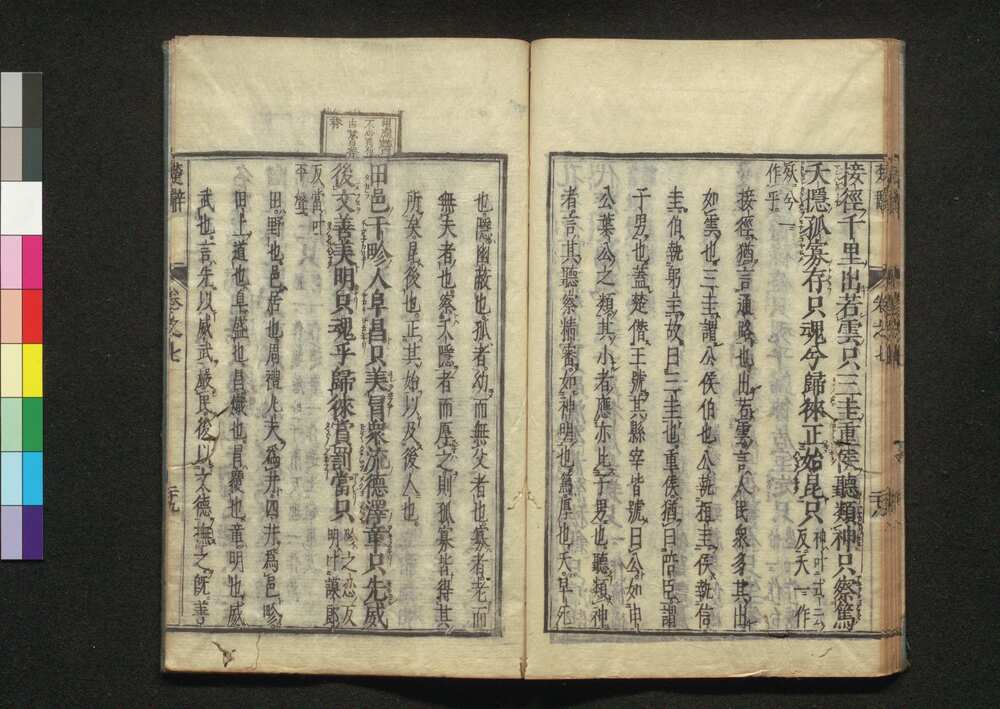 接徑千里出若雲只三圭重侯聽類神只察篤
夭隱孤寡存只魂兮歸徠正始昆只神叶式云反夭一作
殀兮一作乎
接徑猶言通路也出若雲言人民衆多其出
如雲也三圭謂公侯伯也公執桓圭侯執信
圭伯執躬圭故曰三圭也重侯猶曰陪臣謂
子男也蓋楚僭王號其縣宰皆號曰公如申
公葉公之類其小者應亦比子男也聽類神
者言其聽察精審如神明也篤厚也夭早死
也隱幽蔽也孤者幼而無父者也寡者老而
無夫者也察夭隱者而厚之則孤寡皆得其
所矣昆後也正其始以及後人也
田邑千畛人阜昌只美冒衆流德澤章只先威
後文善美明只魂乎歸徠賞罰當只畛之忍反明叶謨郎
反當叶平聲
田野也邑居也周禮九夫爲井四井爲邑畛
田上道也阜盛也昌熾也冒覆也章明也威
武也言先以威武嚴民後以文德撫之旣善
楚辭
卷之七
二十九